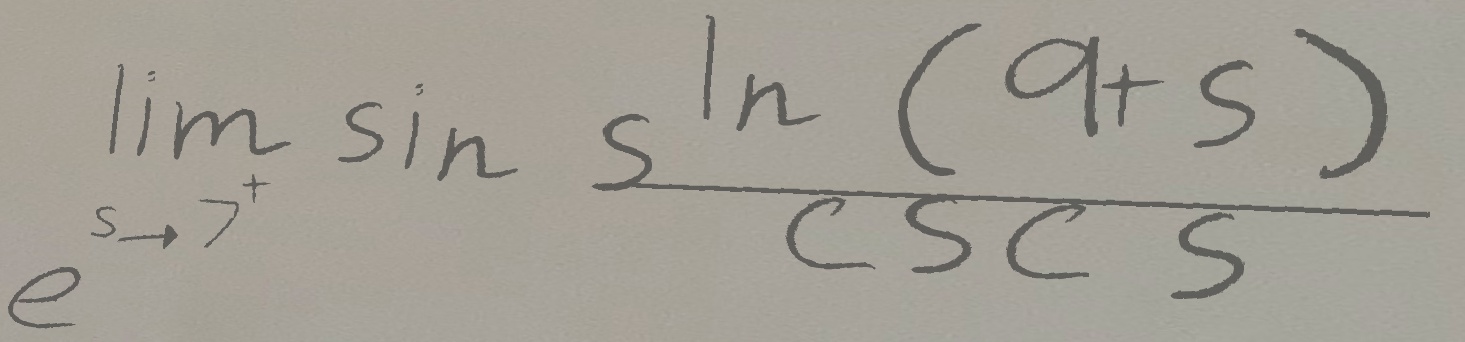 $e^{\lim_{s \to 7^{+}} \sin \frac{s^{\ln (9+s)}}{\csc s}}$